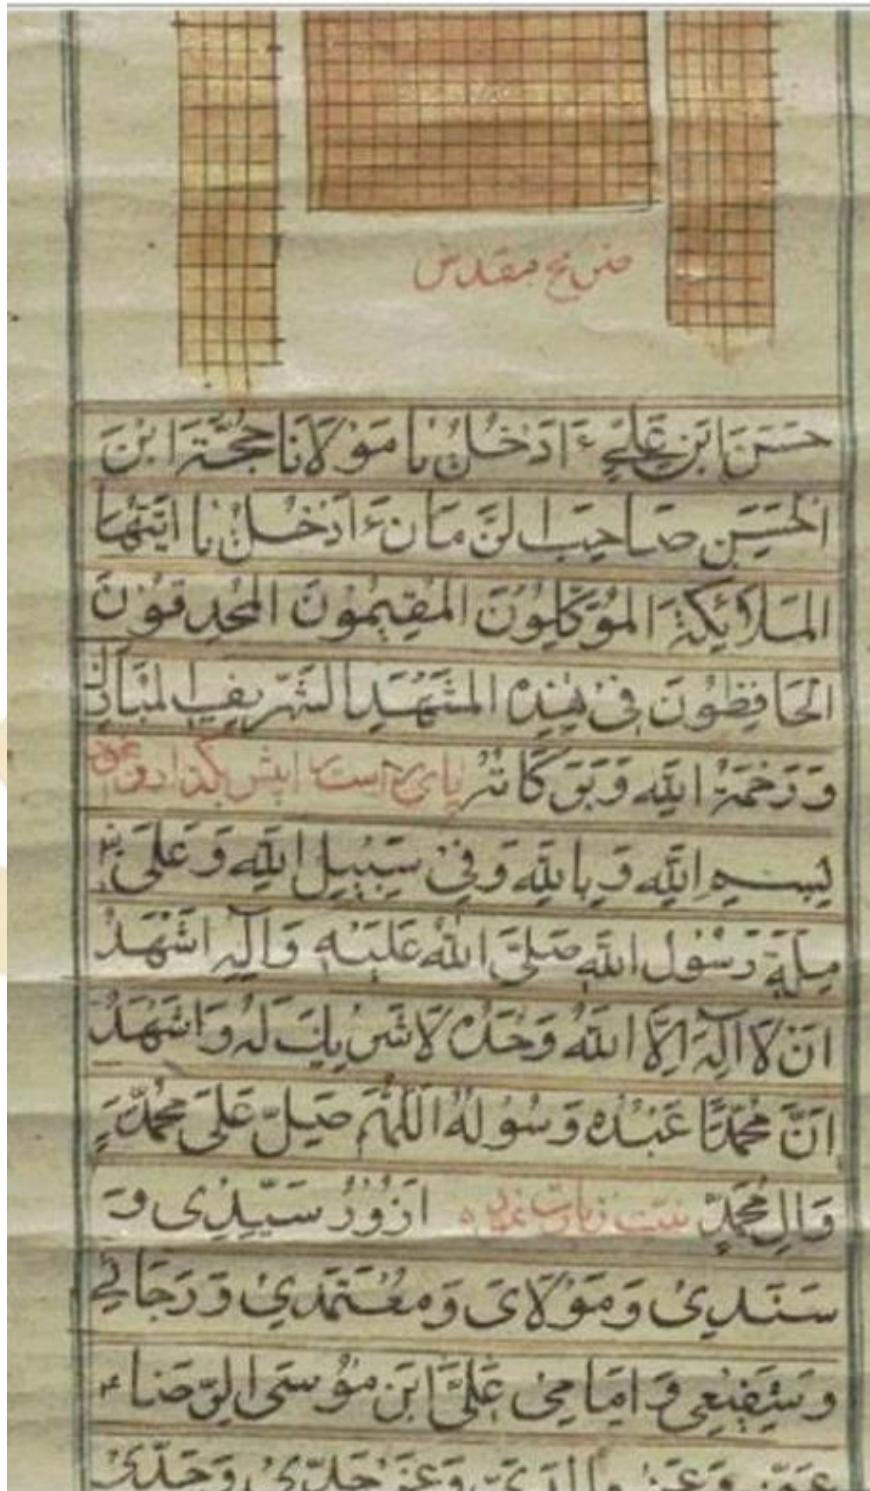 ضریح مقدس
حَسَنَ ابْنِ عَلِيٍ ءَاَدْخُلُ يا مَوْلَانَا حُجَّةَ ابْنَ
الْحَسَنِ صَاحِبَ الزَّمَانِ ءَاَدْخُلُ يا اَيَّتُهَا
المَلَائِكَةَ المُوَكِّلُونَ المُقِيمُونَ المُحدِقُونَ
الْحَافِظُونَ فِيْ هٰذِهِ المَشْهَدِ الشَّرِيفِ المُبَارَك
وَرَحْمَةُ اللهِ وَبَرَكَاتُهُ پای راست پیش گذارد
بِسْمِ اللهِ وَبِاللهِ وَفِيْ سَبِيْلِ اللهِ وَعَلَى
مِلَةِ رَسُوْلِ اللهِ صَلَّى اللهُ عَلَيْهِ وَآلِهِ اَشْهَدُ
اَنْ لَا اِلٰهَ اِلَّا اللهُ وَحْدَهُ لَا شَرِيكَ لَهُ وَاَشْهَدُ
اَنَّ مُحَمَّدًا عَبْدُهُ وَسُولُهُ اَللّٰهُمَّ صَلِّ عَلَى مُحَمَّدٍ
وَالِ مُحَمَّدٍ نیت زیارت نماید اَزُوْرُ سَيِّدِى وَ
سَنَدِيْ وَمَوْلَاىَ وَمُعْتَمَدِيْ وَرَجَائِي
وَشَفِيْعِى وَاِمَامِيْ عَلِيَّ ابْنَ مُوْسَى الرِّضَاء